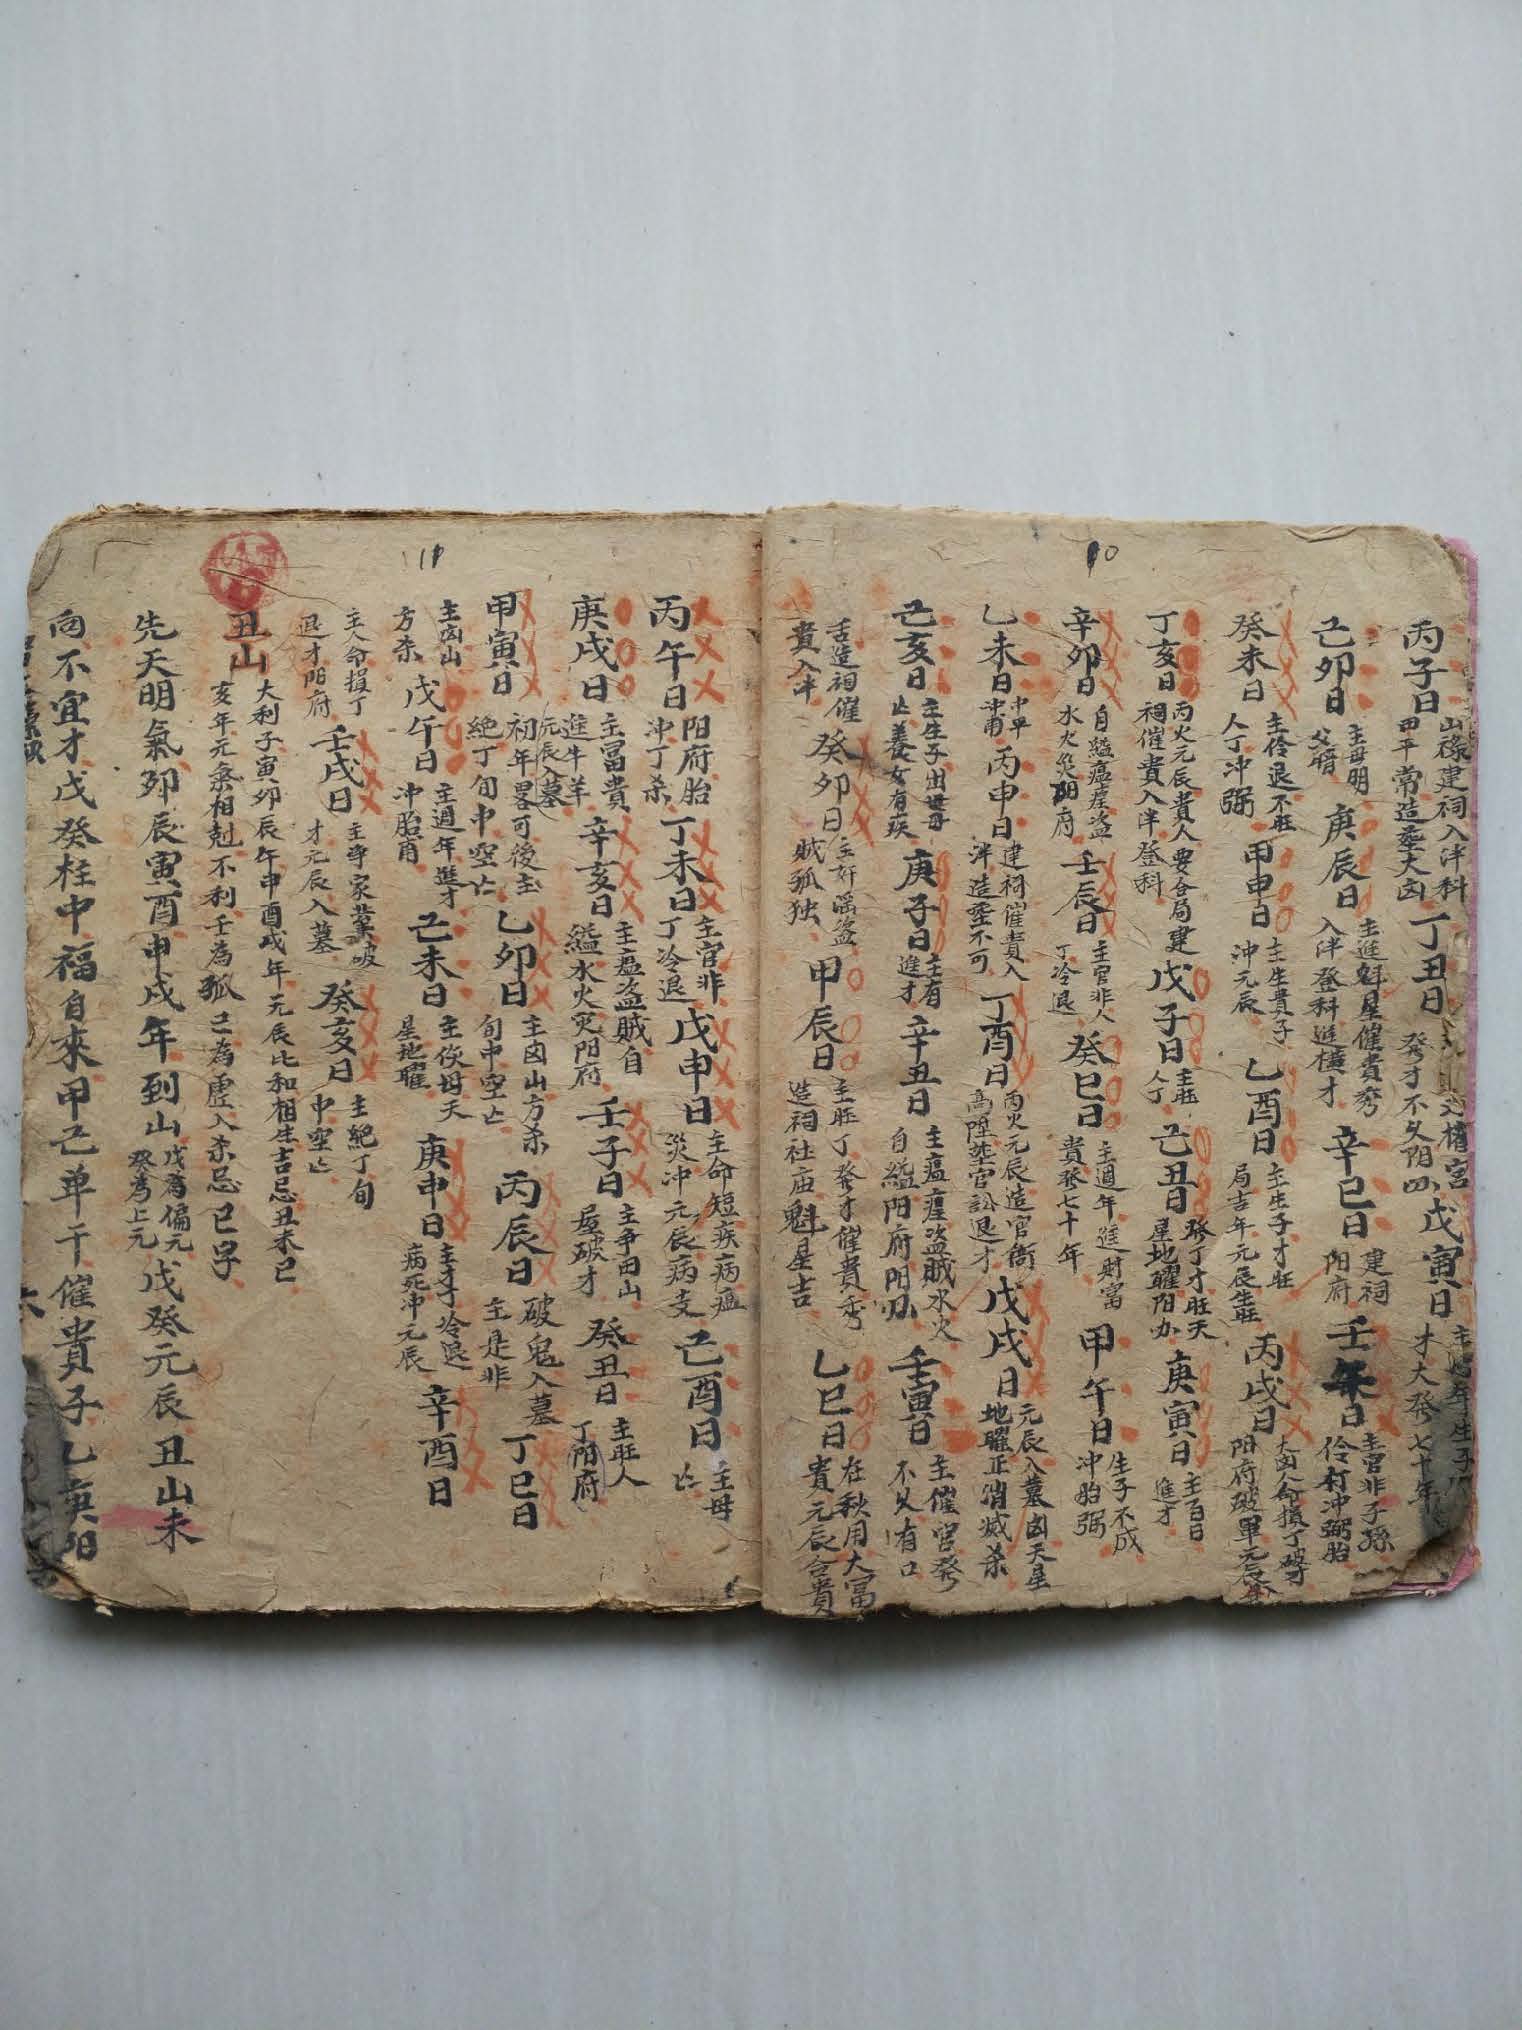 10
丙子日 山祿建祠入泮科 甲平常造葬大凶 丁丑日 發才不久阳 戊寅日 才大發七十年
己卯日 主母明父暗 庚辰日 主進魁星催貴秀入泮登科進橫才 辛巳日 建祠阳府 壬午日 主官非子孫伶仃冲弼胎
癸未日 主伶退不旺人丁冲弼 甲申日 主生貴子冲元辰 乙酉日 主生子才旺局吉年元辰生旺 丙戌日 大凶人命損丁破才阳府破單元辰
丁亥日 丙火元辰貴人要合局建祠催貴入泮登科 戊子日 主旺人丁 己丑日 發丁才旺天星地曜阳力 庚寅日 主百日進才
辛卯日 自縊瘟瘽盜水火災阴府 壬辰日 主官非人丁冷退 癸巳日 主週年進財富貴發七十年 甲午日 生子不成冲胎弼
乙未日 中平冲甫 丙申日 建祠催貴入泮造葬不可 丁酉日 丙火元辰造官衙高陞葬官訟退才 戊戌日 元辰入墓凶天星地曜正消滅杀
己亥日 主生子出母亡養女有疾 庚子日 主有進才 辛丑日 主瘟瘽盜賊水火自縊阳府阳 壬寅日 主催官發不久有口
舌造祠催貴入泮 癸卯日 主奸淫盜賊孤独 甲辰日 主旺丁發才催貴秀造祠社庙魁星吉 乙巳日 在秋用大富貴元辰合貴
11
丙午日 阳府胎冲丁杀 丁未日 主官非丁冷退 戊申日 主命短疾病瘟災冲元辰病支 己酉日 主母亡
庚戌日 主富貴進牛羊元辰入墓 辛亥日 主瘟盜賊自縊水火灾阳府 壬子日 主争田山屋破才 癸丑日 主旺人丁阳府
甲寅日 初年畧可後主絶丁旬中空亡 乙卯日 主凶山方杀旬中空亡 丙辰日 破鬼入墓主是非 丁巳日
主凶山方杀 戊午日 主週年進才冲胎甫 己未日 主伤母天星地曜 庚申日 主才冷退病死冲元辰 辛酉日
主人命損丁退才阳府 壬戌日 主争家業破才元辰入墓 癸亥日 主絶丁旬中空亡
丑山 大利子寅卯辰午申酉戌年元辰比和相生吉忌丑未巳亥年元辰相尅不利壬為孤己為虛入杀忌巳字
先天明氣卯辰寅酉申戌年到山 戊為偏元癸為上元 戊癸元辰丑山未
向不宜才戊癸柱中福自來甲己单干催貴子乙庚阳